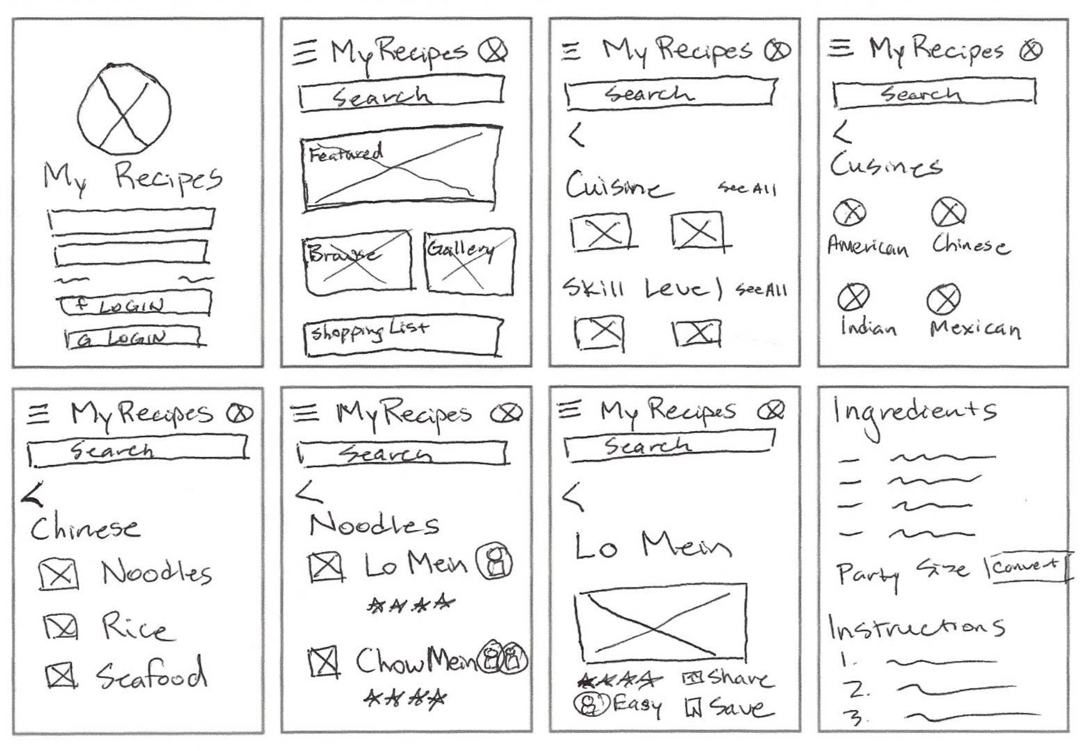 My Recipes
f LOGIN
G LOGIN
My Recipes
Search
Featured
Browse Gallery
Shopping List
My Recipes
Search
<
Cuisine See All
Skill Level See All
My Recipes
Search
<
Cusines
American Chinese
Indian Mexican
My Recipes
Search
<
Chinese
Noodles
Rice
Seafood
My Recipes
Search
<
Noodles
Lo Mein
Chow Mein
My Recipes
Search
<
Lo Mein
Share
Easy Save
Ingredients
Party Size Convert
Instructions
1.
2.
3.